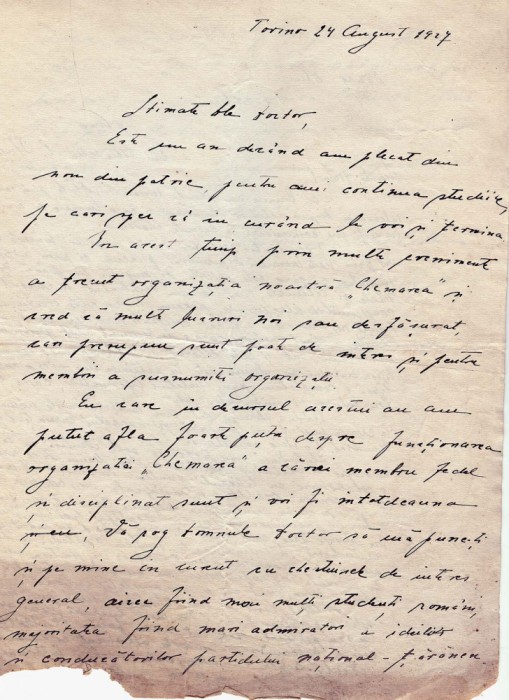 Torino 24 August 1927
Stimate Dle Doctor,
Este un an decând am plecat din
nou din patrie, pentru a-mi continua studiile,
pe cari sper că în curând le voi și termina
În acest timp prin multe
a trecut organizația noastră "Chemarea" și
cred că multe lucruri noi sau desfășurat,
cari presupun sunt poate de interes și pentru
membri a susnumitei organizații.
Eu care in decursul acestui an am
putut afla foarte puțin despre funcționarea
organizației "Chemarea" a cărei membru fidel
și disciplinat sunt și voi fi întotdeauna
Vă rog Domnule Doctor să mă puneți
și pe mine in curent cu chestiunile de interes
general, aicea fiind mai mulți studenți români,
majoritatea fiind mari admiratori a ideilor
și conducătorilor partidului național-țărănesc.